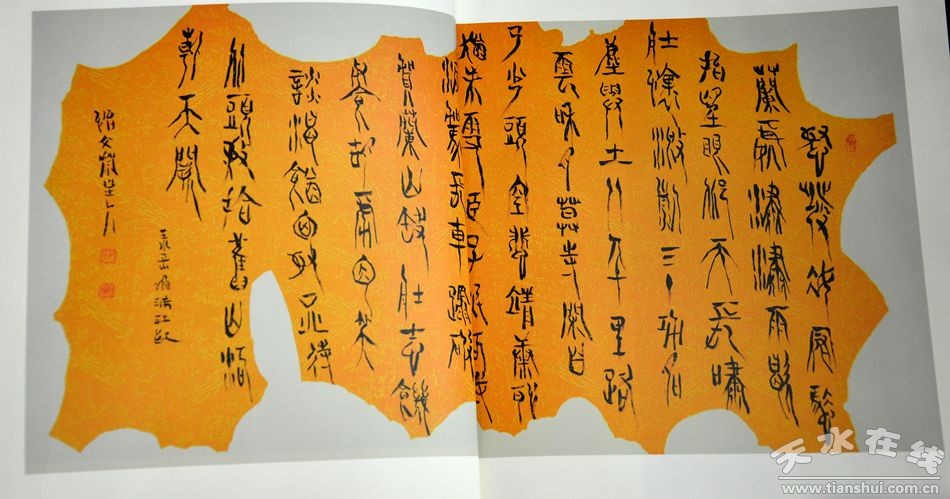 怒髮衝冠憑
蘭處瀟瀟雨歇
抬望眼仰天長嘯
壯懷激烈三十功名
塵與土八千里路
雲和月莫等閒白
了少頭空悲靖康恥
猶未雪臣子恨何時
滅駕長車踏破
賀蘭山缺壯志飢
餐胡虜肉笑
談渴飲匈奴血待
從頭收拾舊山河
朝天闕
岳飛滿江紅
天水在线
www.tianshui.com.cn